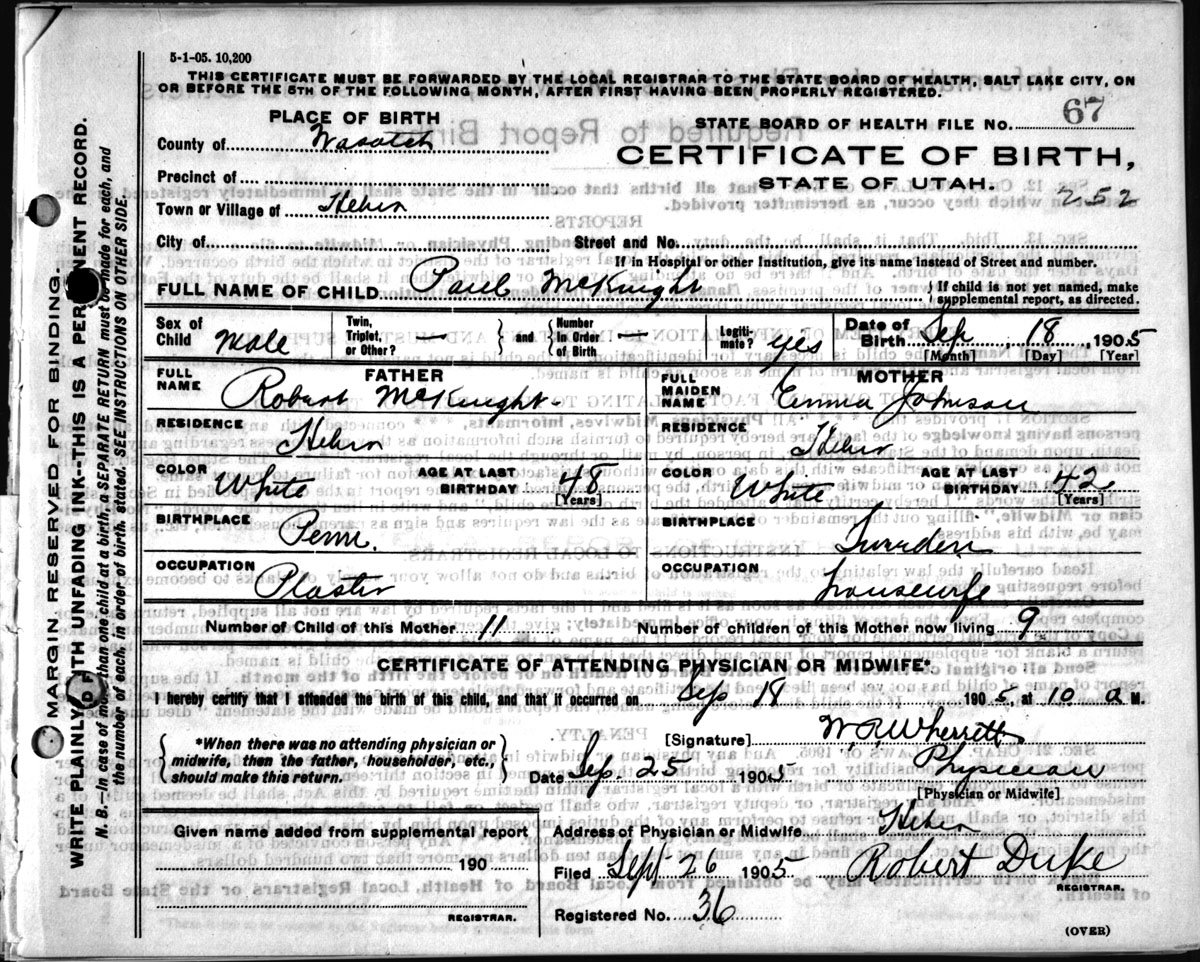 5-1-05. 10,200
THIS CERTIFICATE MUST BE FORWARDED BY THE LOCAL REGISTRAR TO THE STATE BOARD OF HEALTH, SALT LAKE CITY, ON
OR BEFORE THE 5TH OF THE FOLLOWING MONTH, AFTER FIRST HAVING BEEN PROPERLY REGISTERED.
PLACE OF BIRTH
STATE BOARD OF HEALTH FILE No. 67
County of Wasatch
CERTIFICATE OF BIRTH,
Precinct of
STATE OF UTAH.
252
Town or Village of Heber
City of Street and No.
If in Hospital or other Institution, give its name instead of Street and number.
FULL NAME OF CHILD Paul McKnight } If child is not yet named, make
supplemental report, as directed.
Sex of Child Male Twin, Triplet, or Other? — } and { Number in Order of Birth — Legiti-mate? yes Date of Birth Sep 18 1905
[Month] [Day] [Year]
FATHER
FULL NAME Robert McKnight
RESIDENCE Heber
COLOR White AGE AT LAST BIRTHDAY 48
[Years]
BIRTHPLACE Penn.
OCCUPATION Plaster
MOTHER
FULL MAIDEN NAME Emma Johnson
RESIDENCE Heber
COLOR White AGE AT LAST BIRTHDAY 42
[Years]
BIRTHPLACE Swurden
OCCUPATION housewife
Number of Child of this Mother 11 Number of children of this Mother now living 9
CERTIFICATE OF ATTENDING PHYSICIAN OR MIDWIFE*
I hereby certify that I attended the birth of this child, and that it occurred on Sep 18 1905, at 10 a M.
{ *When there was no attending physician or
midwife, then the father, householder, etc.,
should make this return. }
[Signature] W. R. Wherrett
Date Sep. 25 1905 Physician
[Physician or Midwife]
Given name added from supplemental report
190
REGISTRAR.
Address of Physician or Midwife Heber
Filed Sept 26 1905 Robert Duke
REGISTRAR.
Registered No. 36
(OVER)
MARGIN RESERVED FOR BINDING.
WRITE PLAINLY WITH UNFADING INK--THIS IS A PERMANENT RECORD.
N. B.—In case of more than one child at a birth, a SEPARATE RETURN must be made for each, and
the number of each, in order of birth, stated. SEE INSTRUCTIONS ON OTHER SIDE.